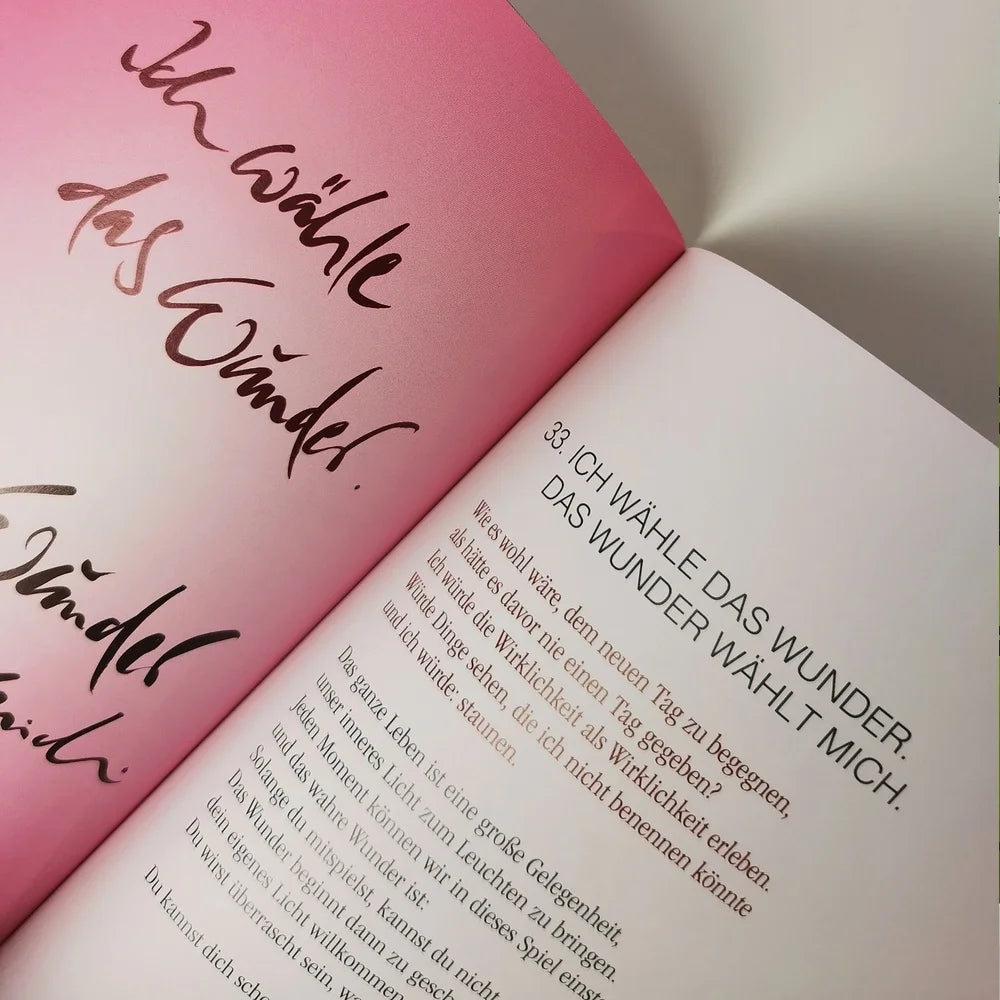 Ich wähle
das Wunder.
Wunder
mich.
33. ICH WÄHLE DAS WUNDER.
DAS WUNDER WÄHLT MICH.
Wie es wohl wäre, dem neuen Tag zu begegnen,
als hätte es davor nie einen Tag gegeben?
Ich würde die Wirklichkeit als Wirklichkeit erleben.
Würde Dinge sehen, die ich nicht benennen könnte
und ich würde: staunen.
Das ganze Leben ist eine große Gelegenheit,
unser inneres Licht zum Leuchten zu bringen.
Jeden Moment können wir in dieses Spiel
und das wahre Wunder ist:
Solange du mitspielst, kannst du nicht
Das Wunder beginnt dann zu
dein eigenes Licht willkommen
Du wirst überrascht sein,
Du kannst dich